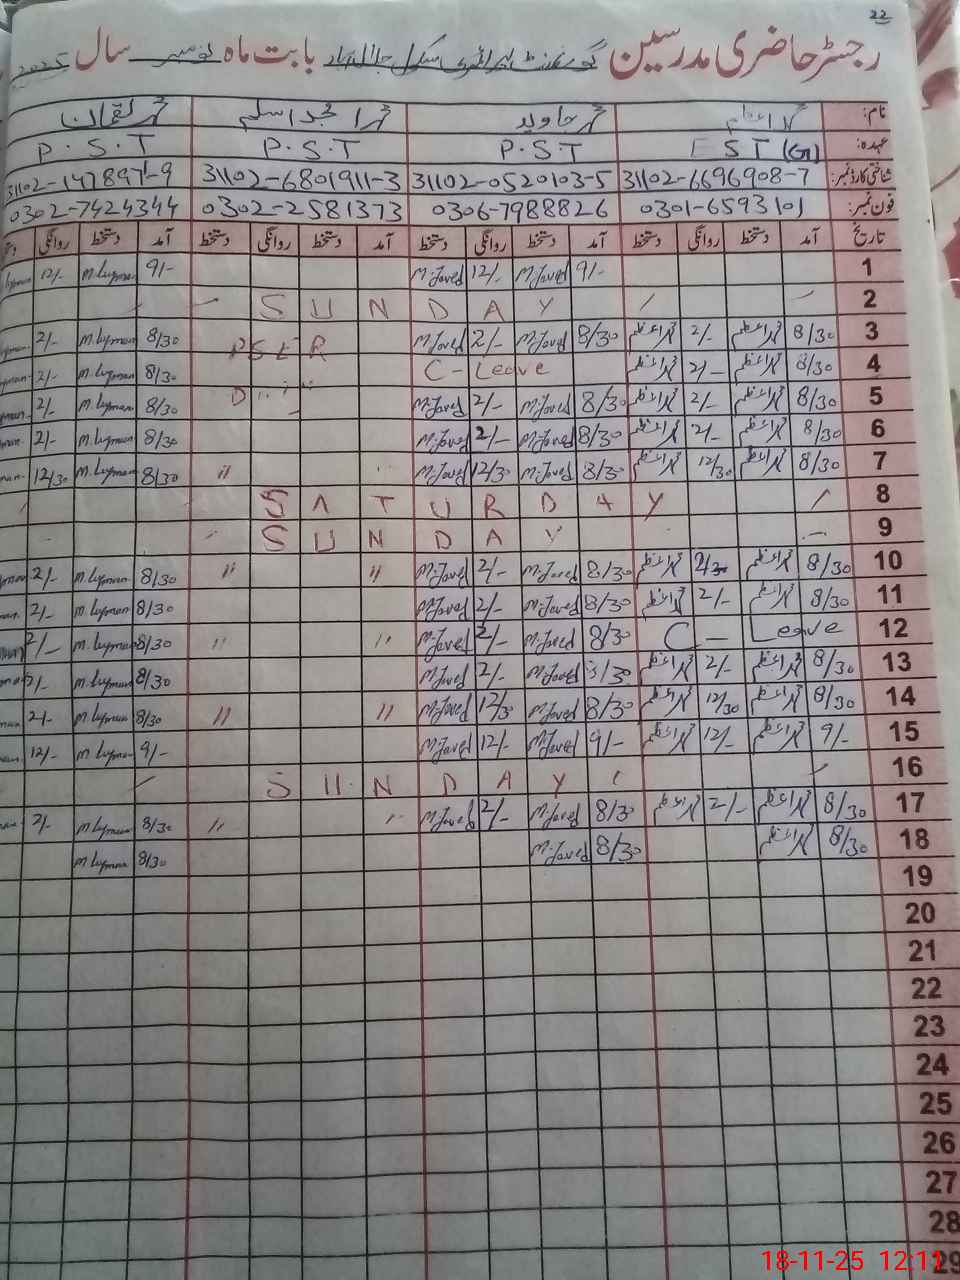 22
رجسٹر حاضری مدرسین گورنمنٹ پرائمری سکول جلال آباد بابت ماہ نومبر سال 2025
نام: محمد اعظم محمد جاوید محمد امجد اسلم محمد لقمان
عہدہ: EST (G) P.S.T P.S.T P.S.T
شناختی کارڈ نمبر: 31102-6696908-7 31102-0520103-5 31102-6801911-3
فون نمبر: 0301-6593101 0306-7988826 0302-2581373 0302-7424344
تاریخ آمد دستخط روانگی دستخط آمد دستخط روانگی دستخط آمد دستخط روانگی دستخط آمد دستخط روانگی
1 9/- M.Javed 12/- M.Javed 9/- M.luqman 12/-
2 SUNDAY
3 8/30 محمد اعظم 2/- محمد اعظم 8/30 M.Javed 2/- M.Javed PSER 8/30 M.luqman 2/-
4 8/30 محمد اعظم 2/- محمد اعظم C-Leave 8/30 M.luqman 2/-
5 8/30 محمد اعظم 2/- محمد اعظم 8/30 M.Javed 2/- M.Javed 8/30 M.luqman 2/-
6 8/30 محمد اعظم 2/- محمد اعظم 8/30 M.Javed 2/- M.Javed 8/30 M.luqman 2/-
7 8/30 محمد اعظم 12/30 محمد اعظم 8/30 M.Javed 12/30 M.Javed 〃 8/30 M.luqman 12/30
8 SATURDAY
9 SUNDAY
10 8/30 محمد اعظم محمد اعظم 8/30 M.Javed 2/- M.Javed 〃 〃 8/30 M.luqman 2/-
11 8/30 محمد اعظم 2/- محمد اعظم 8/30 M.Javed 2/- M.Javed 8/30 M.luqman 2/-
12 C - Leave 8/30 M.Javed 2/- M.Javed 〃 〃 8/30 M.luqman 2/-
13 8/30 محمد اعظم 2/- محمد اعظم 8/30 M.Javed 2/- M.Javed 8/30 M.luqman 2/-
14 8/30 محمد اعظم 12/30 محمد اعظم 8/30 M.Javed 12/30 M.Javed 〃 〃 8/30 M.luqman 2/-
15 9/- محمد اعظم 12/- محمد اعظم 9/- M.Javed 12/- M.Javed 9/- M.luqman 12/-
16 SUNDAY
17 8/30 محمد اعظم 2/- محمد اعظم 8/30 M.Javed 2/- M.Javed 〃 〃 8/30 M.luqman 2/-
18 8/30 محمد اعظم 8/30 M.Javed 8/30 M.luqman
19
20
21
22
23
24
25
26
27
28
29
18-11-25 12:11